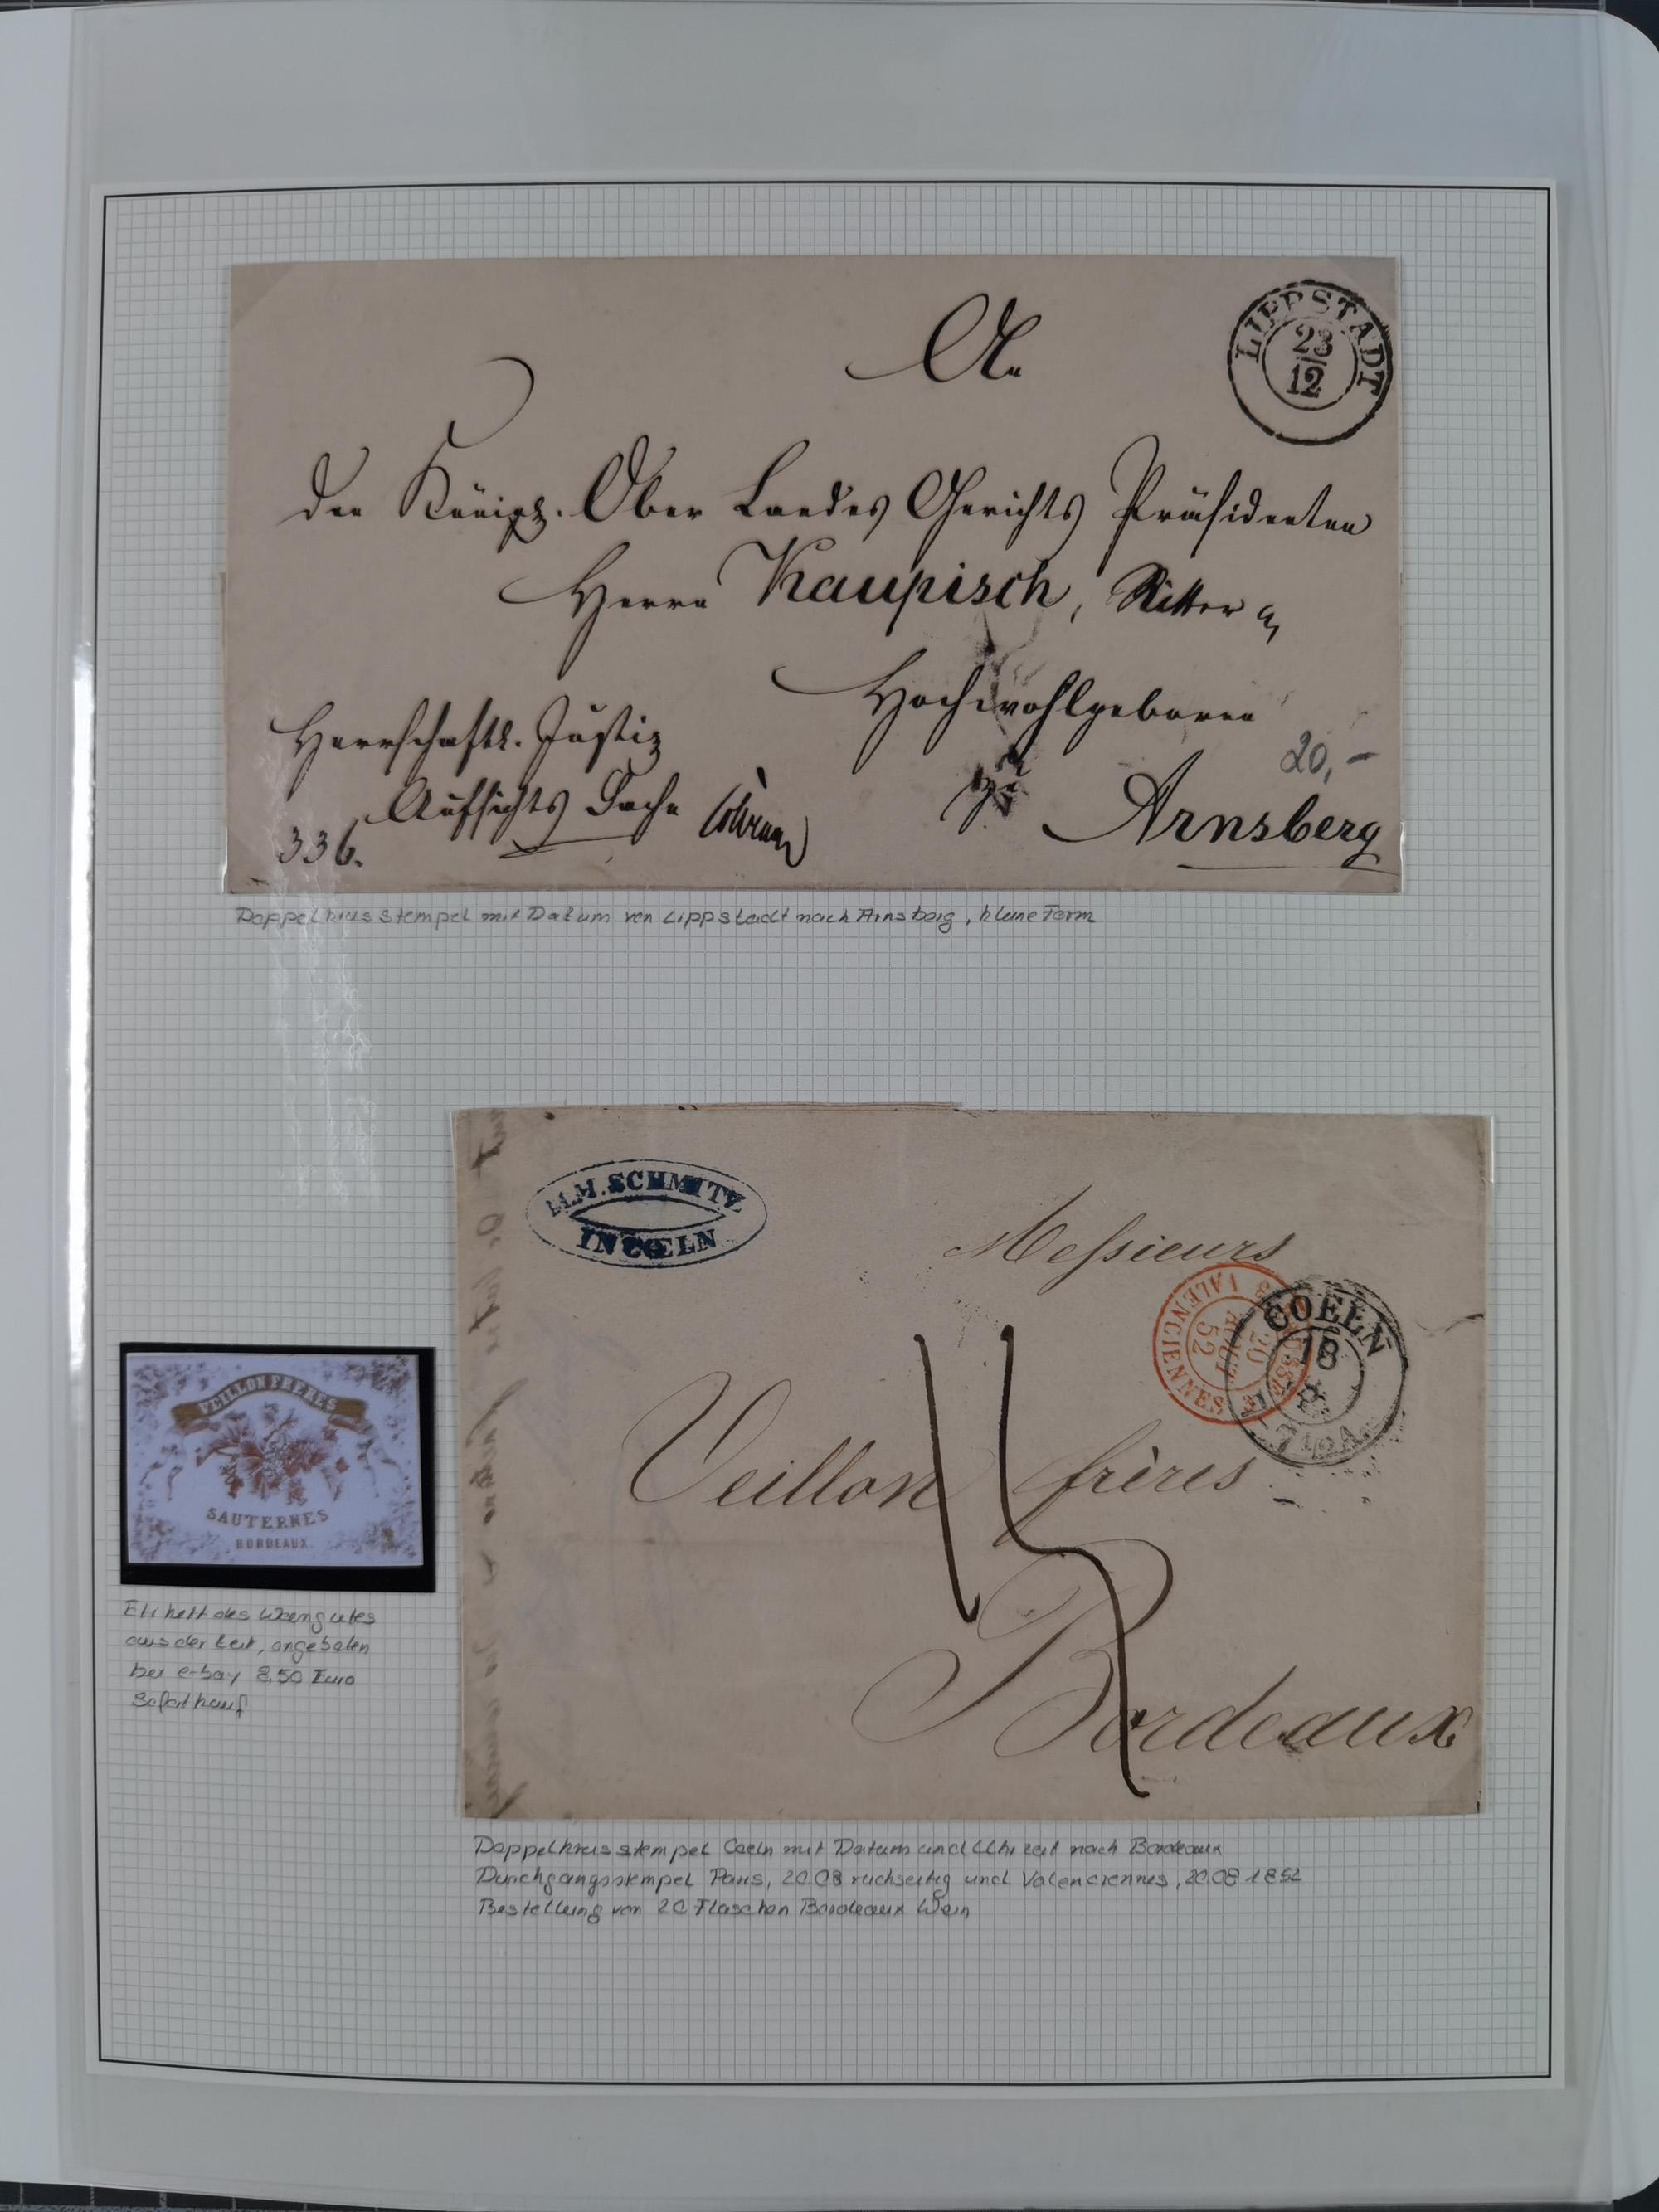 An
LIPPSTADT
23
12
den Königl. Ober Landes Gerichts Präsidenten
Herrn Kaupisch, Ritter
Hochwohlgeboren
Herrschaftl. Justiz
20,-
Aufsichts Sache
zu Arnsberg
336.
Doppelkreisstempel mit Datum von Lippstadt nach Arnsberg, kleine Form
M.M. SCHMITZ
IN COELN
Messieurs
VALENCIENNES
20
AOUT
52
COELN
18
8
Veillon frères
Bordeaux
VEILLON FRERES
SAUTERNES
BORDEAUX
Etikett des Weingutes
aus der Zeit, angeboten
bei e-bay 8.50 Euro
Sofortkauf
Doppelkreisstempel Coeln mit Datum und Uhrzeit nach Bordeaux
Durchgangsstempel Paris, 20.08 rückseitig und Valenciennes, 20.08 1852
Bestellung von 20 Flaschen Bordeaux Wein